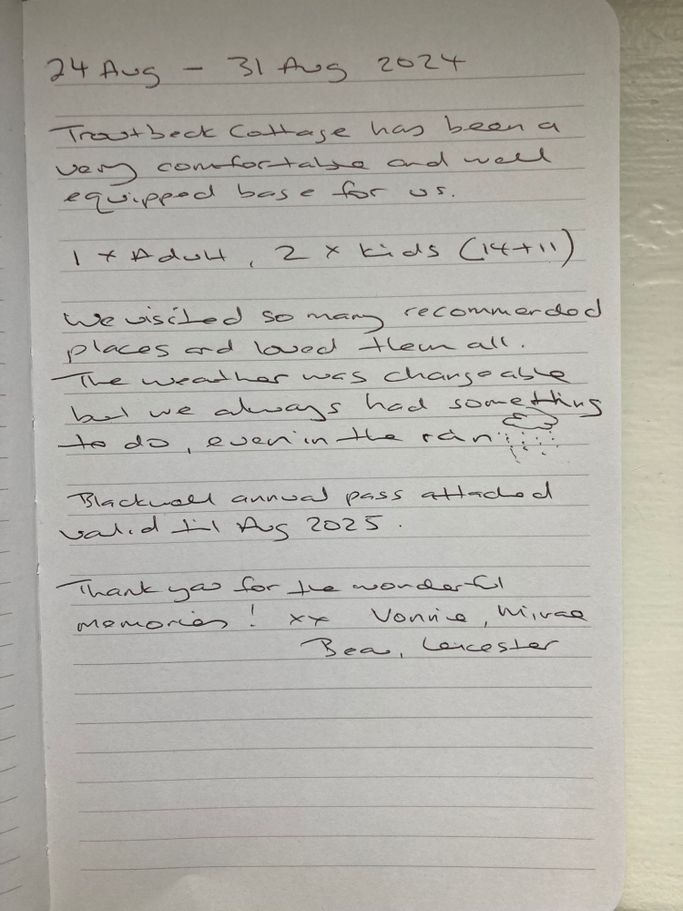 24 Aug - 31 Aug 2024
Troutbeck Cottage has been a
very comfortable and well
equipped base for us.
1 x Adult, 2 x kids (14+11)
We visited so many recommended
places and loved them all.
The weather was changeable
but we always had something
to do, even in the rain
Blackwell annual pass attached
valid til Aug 2025.
Thank you for the wonderful
memories! xx Vonnie,
Bea, Leicester